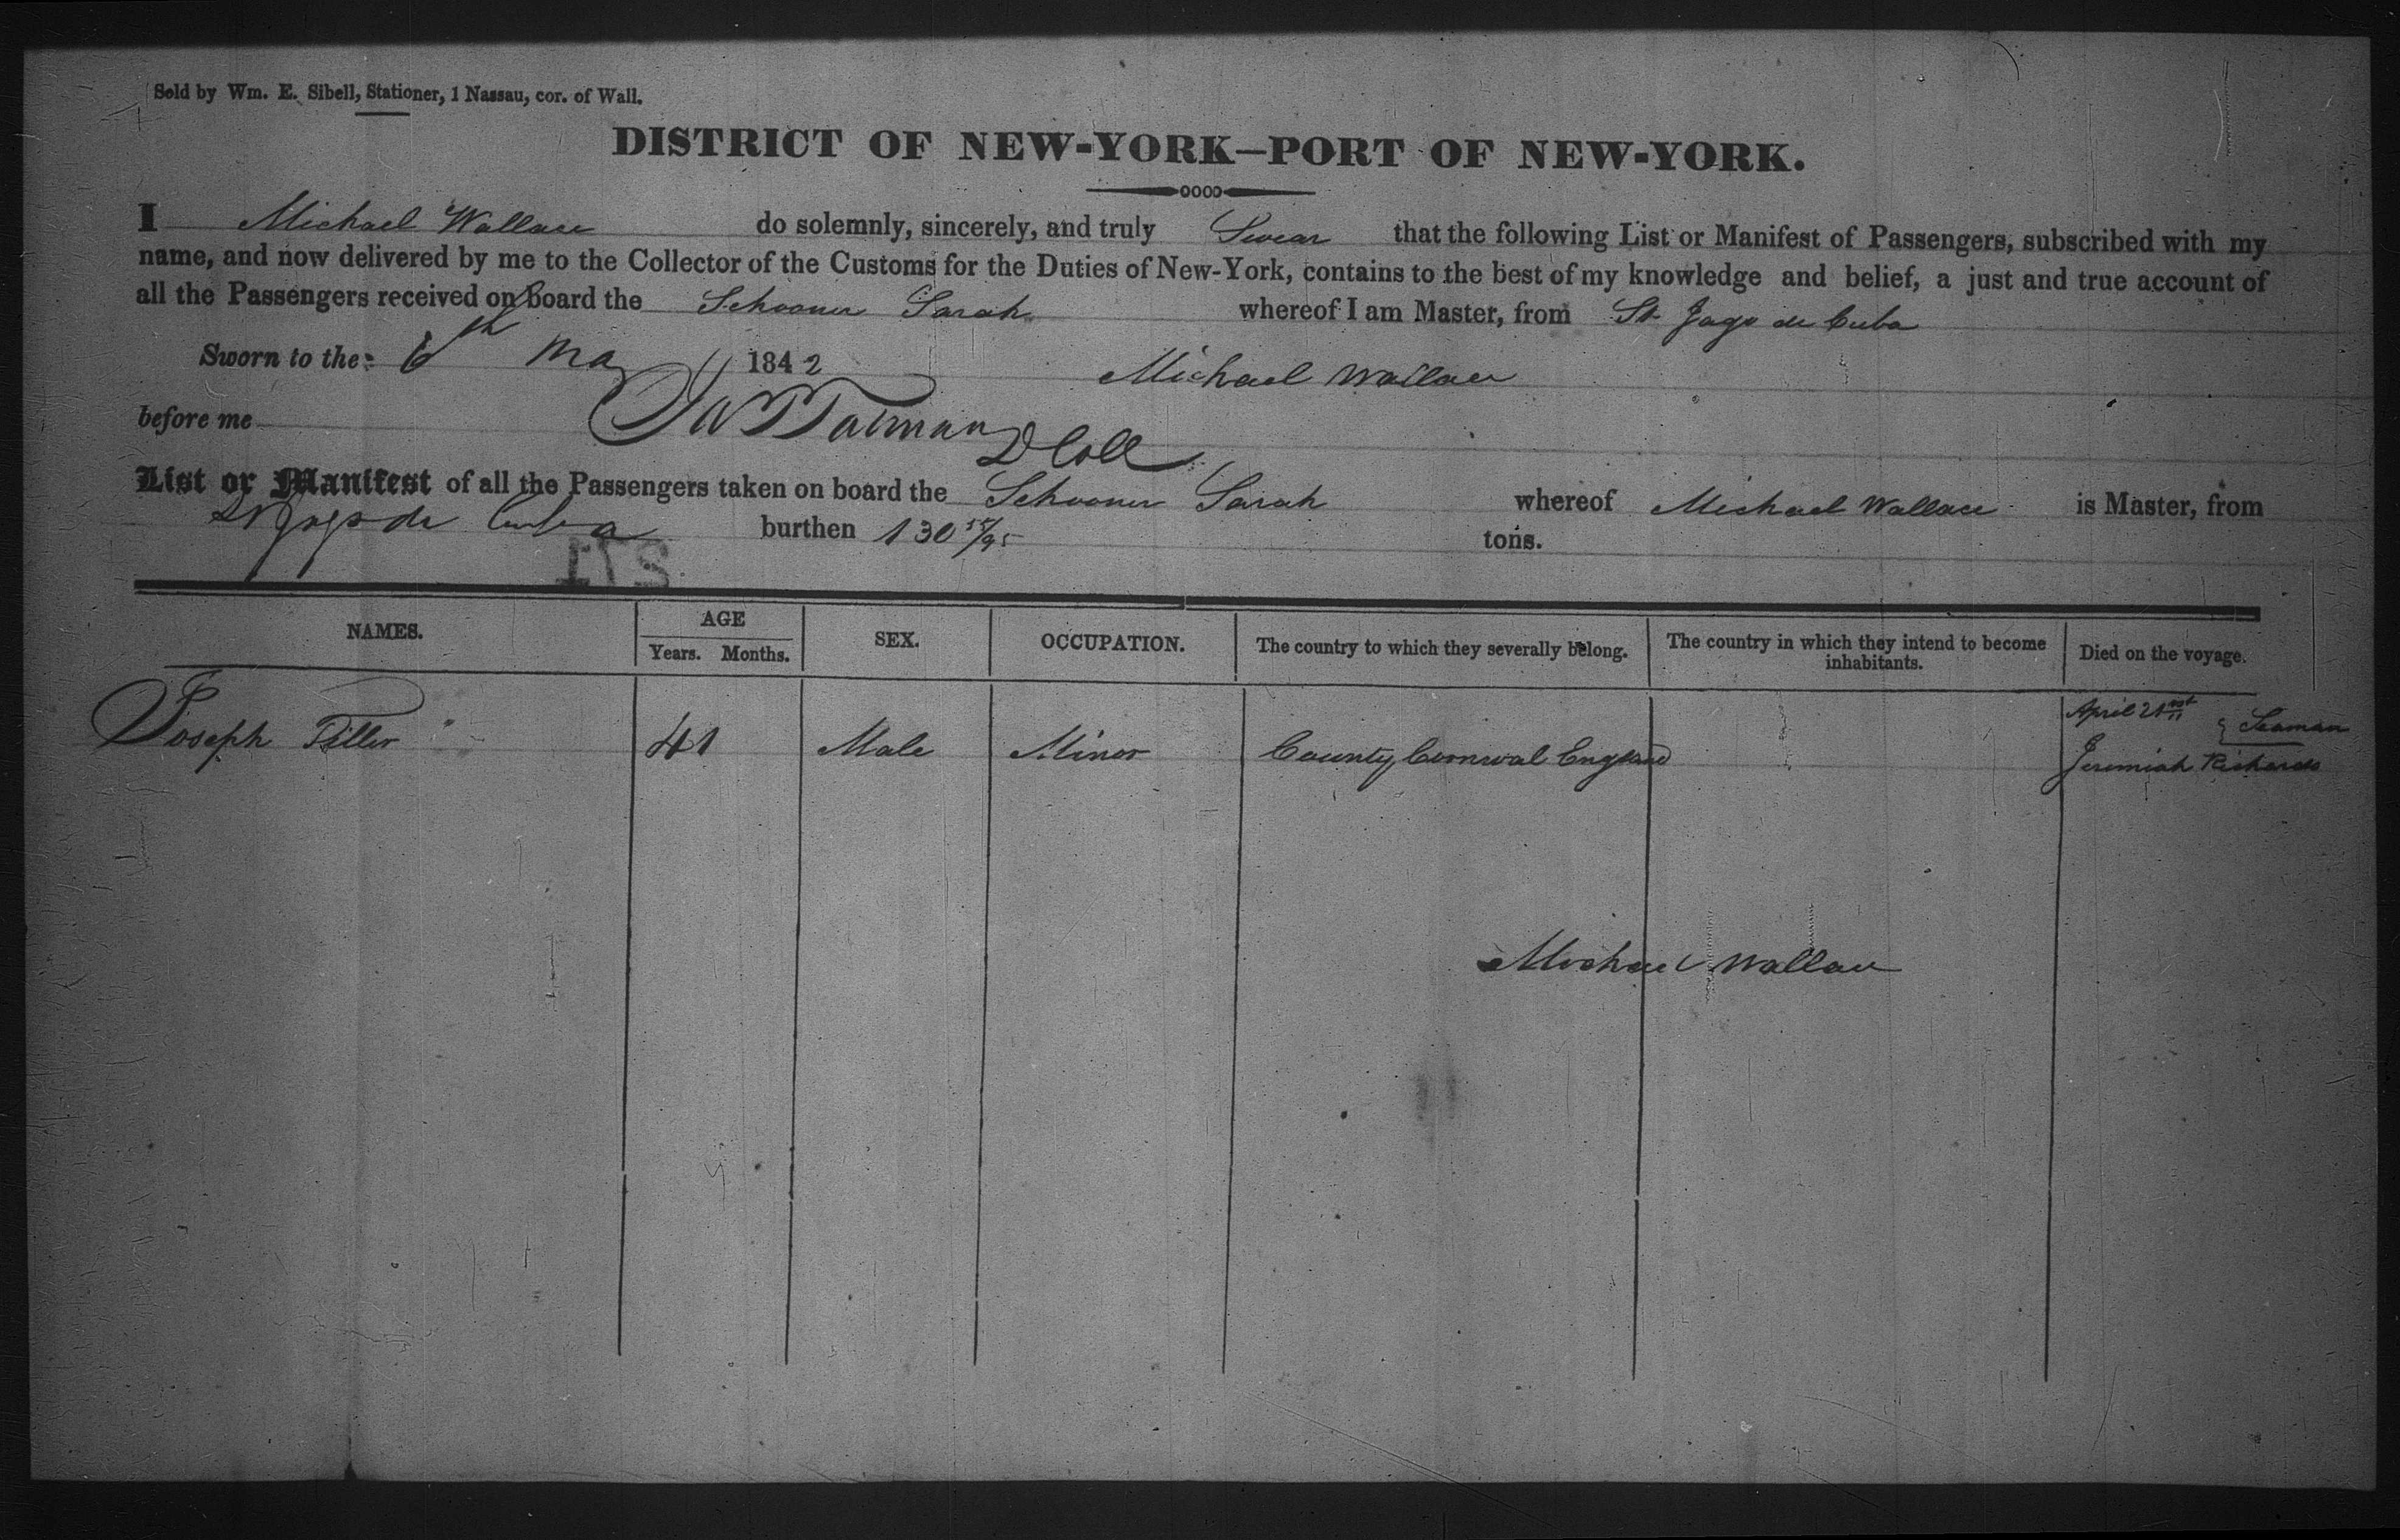 Sold by Wm. E. Sibell, Stationer, 1 Nassau, cor. of Wall.
DISTRICT OF NEW-YORK—PORT OF NEW-YORK.
I Michael Wallace do solemnly, sincerely, and truly Swear that the following List or Manifest of Passengers, subscribed with my
name, and now delivered by me to the Collector of the Customs for the Duties of New-York, contains to the best of my knowledge and belief, a just and true account of
all the Passengers received on board the Schooner Sarah whereof I am Master, from St Jago de Cuba
Sworn to the 6th May 1842 Michael Wallace
before me D Coll
List or Manifest of all the Passengers taken on board the Schooner Sarah whereof Michael Wallace is Master, from
St Jago de Cuba burthen 130 55/95 tons.
NAMES. AGE Years. Months. SEX. OCCUPATION. The country to which they severally belong. The country in which they intend to become inhabitants. Died on the voyage.
April 21st Seaman
Joseph Tiller 41 Male Minor County Cornwal England Jeremiah Richards
Michael Wallace